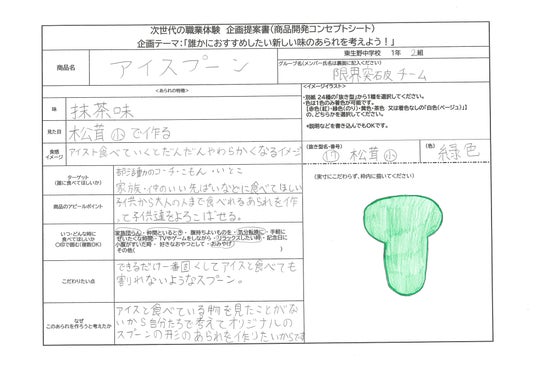 次世代の職業体験 企画提案書(商品開発コンセプトシート)
企画テーマ:「誰かにおすすめしたい新しい味のあられを考えよう!」
東生野中学校 1年 2組
商品名
アイスプーン
グループ名(メンバー氏名は裏面に記入ください)
限界突破チーム
<あられの特徴>
味
抹茶味
見た目
松茸 小 で作る
食感
イメージ
アイスト食べていくとだんだんやわらかくなるイメージ
ターゲット
(誰に食べてほしいか)
部活動のコーチ・こもん・いとこ
家族・仲のいい先ぱいなどに食べてほしい
商品のアピールポイント
子供から大人の人まで食べれるあられを作
って子供達をよろこばせる。
いつどんな時に
食べてほしいか
○印で囲む(複数OK)
家族団らん・仲間といるとき・腹持ちよいものを・気分転換に・手軽に
ぜいたくな時間・TVやゲームをしながら・リラックスしたい時・記念日に
小腹がすいた時・好きなおやつとして・おみやげ
その他( )
こだわりたい点
できるだけ一番固くしてアイスと食べても
割れないようなスプーン。
なぜ
このあられを作ろうと考えたか
アイスと食べている物を見たことがな
いから自分たちで考えてオリジナルの
スプーンの形のあられを作りたいからです
<イメージイラスト>
・別紙24種の「抜き型」から1種を選択してください。
・色は1色のみ着色が可能です。
【赤色(紅)・緑色(のり)・黄色・茶色 又は着色なしの「白色(ベージュ)」】
の、どちらかを選択してください。
*説明などを書き込んでもOKです。
(抜き型名・番号)
⑰ 松茸 小
(色)
緑色
(実寸にこだわらず、枠内に描いてください)